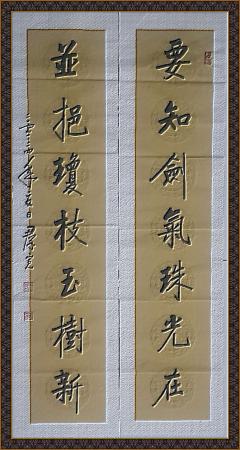 要知劍氣珠光在
並挹瓊枝玉樹新